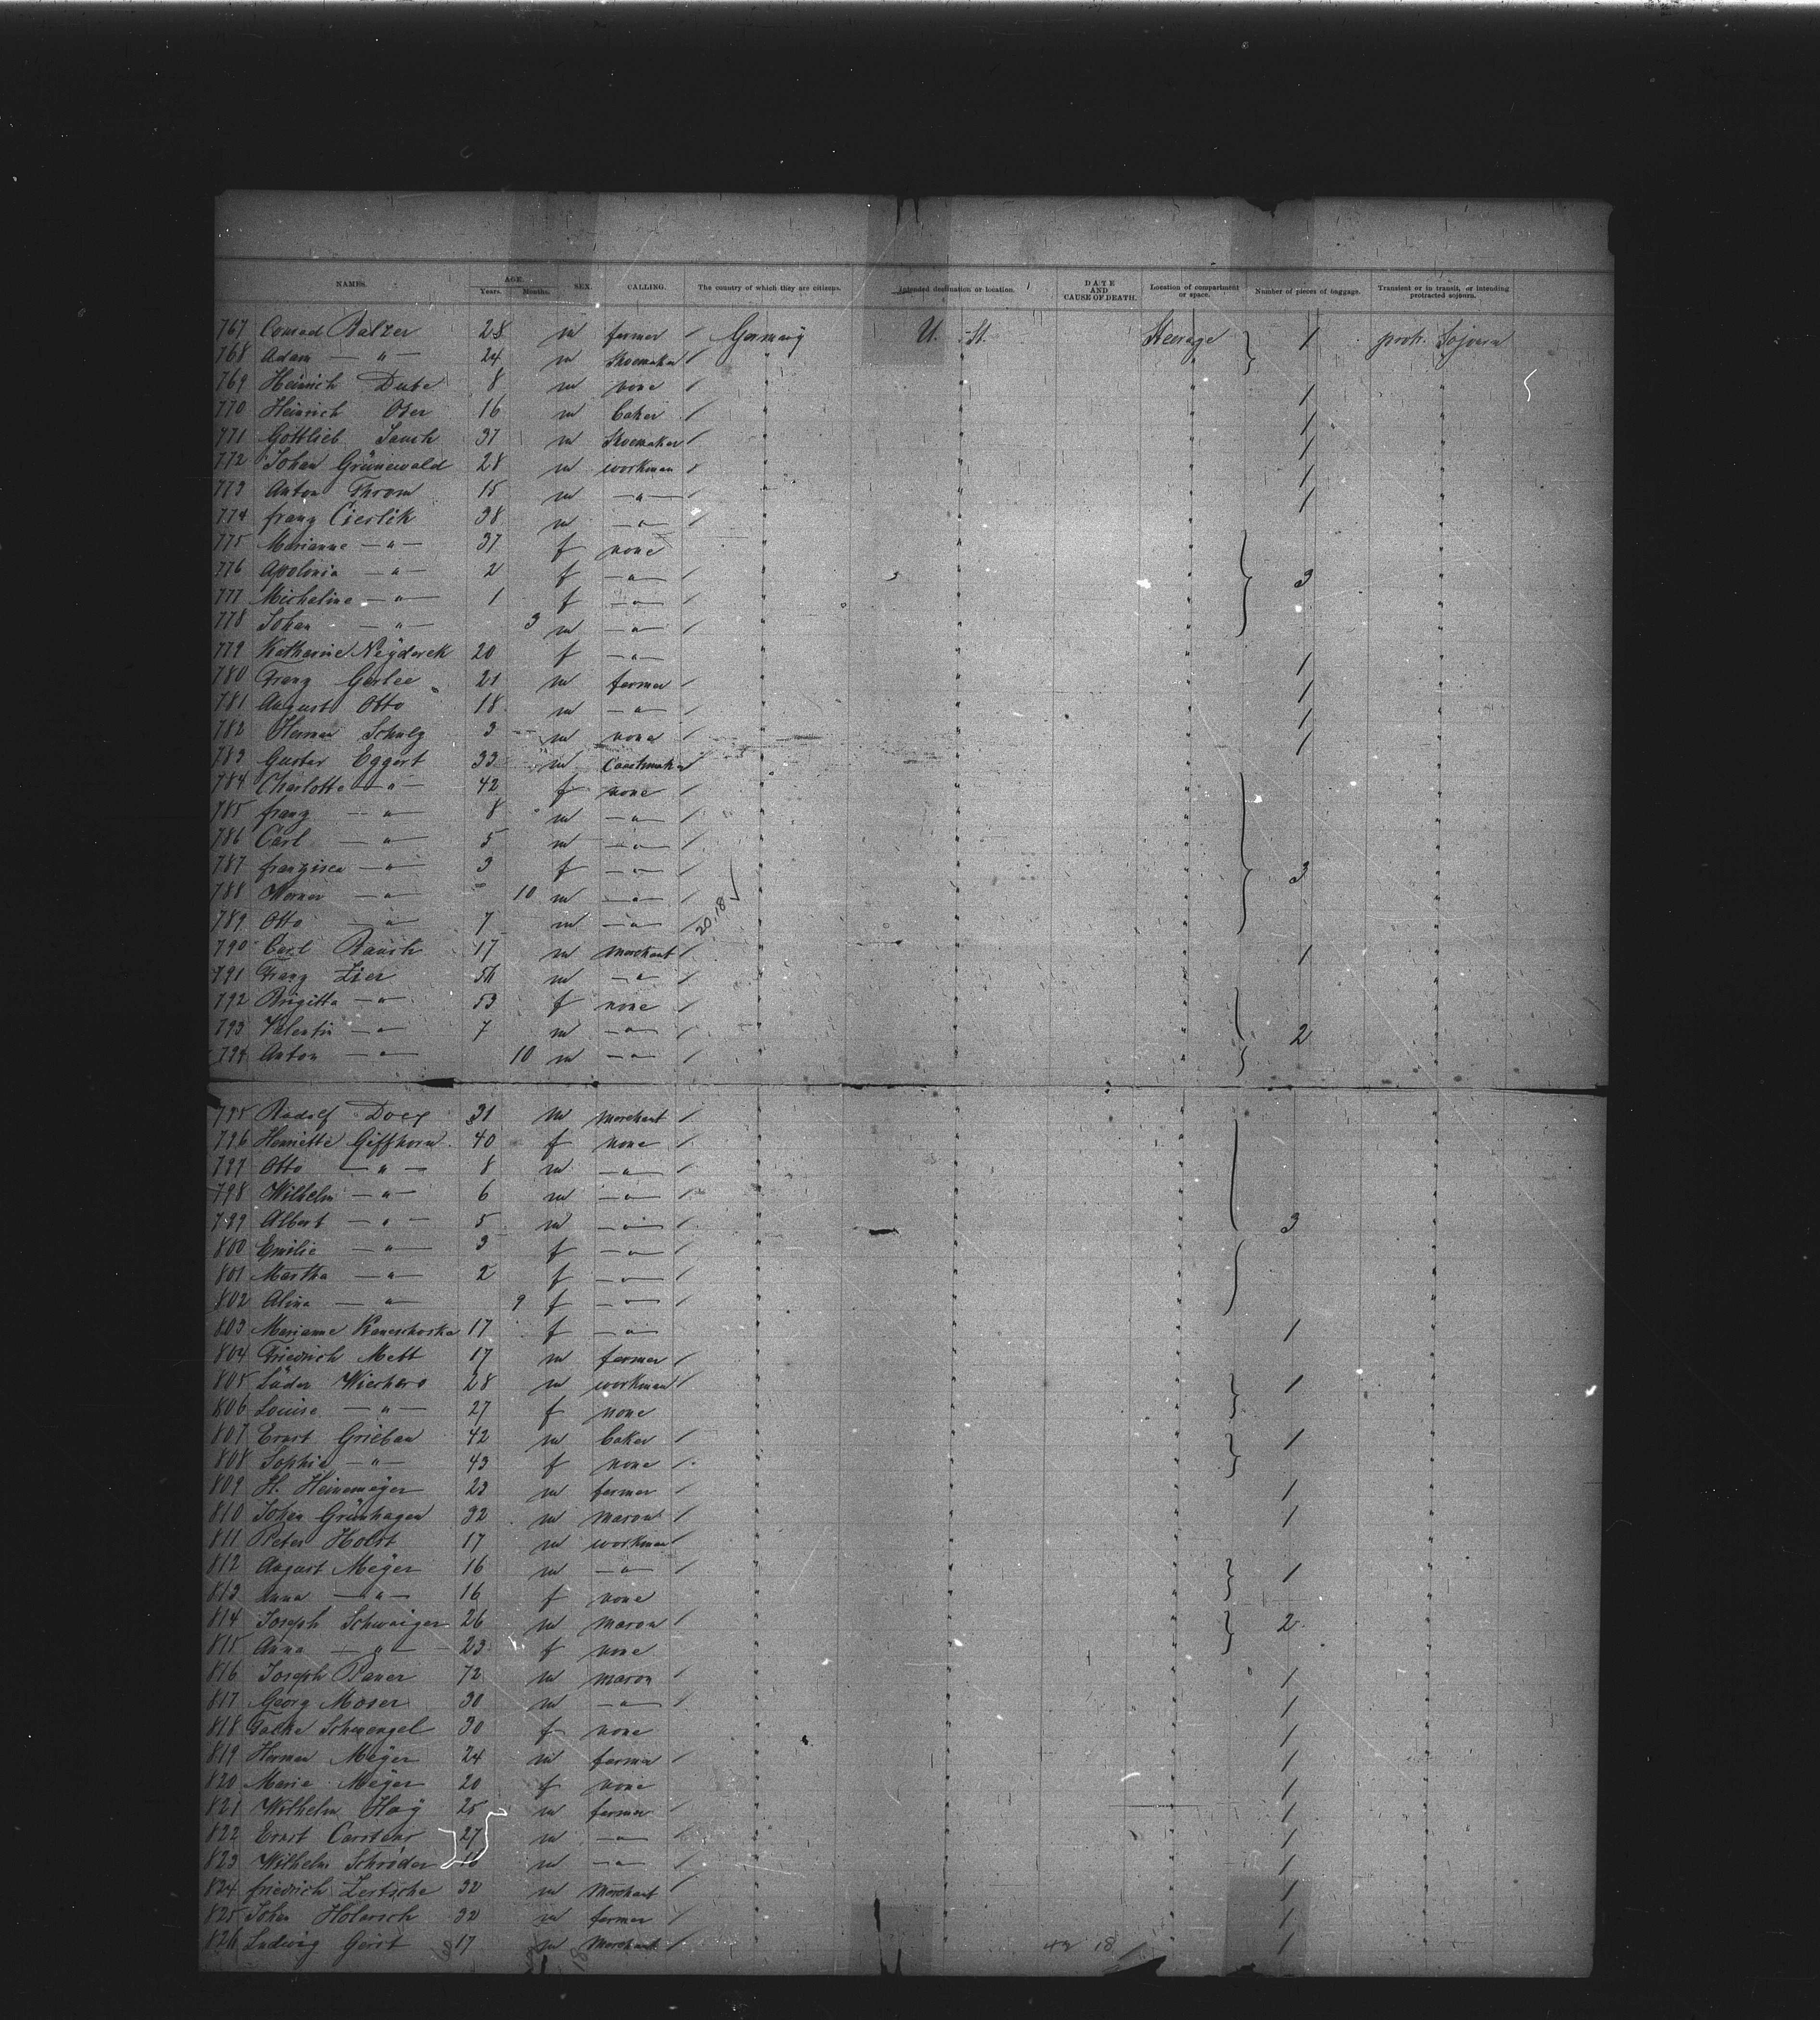 NAMES. AGE. Years. Months. SEX. CALLING. The country of which they are citizens. Intended destination or location. DATE AND CAUSE OF DEATH. Location of compartment or space. Number of pieces of baggage. Transient or in transit, or intending protracted sojourn.
767 Conrad Balzer 28 m farmer / Germany U. St. Steerage } 1 protr. Sojourn
768 Adam — " — 24 m Shoemaker / " " " "
769 Heinrich Dube 8 m none / " " " 1 "
770 Heinrich Oser 16 m baker / " " " 1 "
771 Gottlieb Jauch 37 m Shoemaker / " " " 1 "
772 Johan Grünewald 28 m workman / " " " 1 "
773 Anton Throm 15 m — " — / " " " 1 "
774 franz Cierlik 38 m — " — / " " " "
775 Marianne — " — 37 f none " " " "
776 Apolonia — " — 2 f — " — / " " " } 3 "
777 Micheline — " — 1 f — " — / " " " "
778 Johan — " — 3 m — " — / " " " "
779 Katharine Neyderek 20 f — " — " " " 1 "
780 Franz Gerlee 21 m farmer / " " " 1 "
781 August Otto 18 m — " — / " " " 1 "
782 Herman Schulz 3 m none / " " " 1 "
783 Gustav Eggert 33 m / " " " "
784 Charlotte — " — 42 f none / " " " "
785 franz — " — 8 m — " — / " " " "
786 Carl — " — 5 m — " — / " " " "
787 franzisca — " — 3 f — " — / " " " } 3 "
788 Werner — " — 10 m — " — / " " " "
789 Otto — " — 7 m — " — / 20,18 ✓ " " " "
790 Carl Rausch 17 m Merchant / " " " 1 "
791 Franz Zier 56 m — " — / " " " "
792 Brigitta — " — 53 f none / " " " "
793 Valentin — " — 7 m — " — / " " " } 2 "
794 Anton — " — 10 m — " — / " " " "
795 Rudolf 31 m Merchant / " " " "
796 Henriette Giffhorn 40 f none / " " " "
797 Otto — " — 8 m — " — / " " " "
798 Wilhelm — " — 6 m — " — / " " " "
799 Albert — " — 5 m — " — / " " " } 3 "
800 Emilie — " — 3 f — " — / " " " "
801 Martha — " — 2 f — " — / " " " "
802 Alina — " — 9 f — " — / " " " "
803 Marianne 17 f — " — " " " 1 "
804 Friedrich Mett 17 m farmer / " " " "
805 Lüder Wierhers 28 m workman / " " " } 1 "
806 Louise — " — 27 f none " " " "
807 Ernst Grieban 42 m baker / " " " } 1 "
808 Sophie — " — 43 f none / " " " "
809 H. Heinemeÿer 23 m farmer / " " " 1 "
810 Johan Grünhagen 32 m mason / " " " 1 "
811 Peter Holst 17 m workman / " " " "
812 August Meÿer 16 m — " — / " " " } 1 "
813 Anna — " — 16 f none " " " "
814 Joseph Schwaiger 26 m mason / " " " } 2 "
815 Anna — " — 23 f none " " " "
816 Joseph Bauer 72 m mason / " " " 1 "
817 Georg Moser 30 m — " — / " " " 1 "
818 Schwengel 30 f none " " " 1 "
819 Herman Meÿer 24 m farmer / " " " 1 "
820 Marie Meÿer 20 f none " " " 1 "
821 Wilhelm Hoÿ 25 m farmer / " " " 1 "
822 Ernst Carstens 27 m — " — / " " " 1 "
823 Wilhelm Schröder 16 m — " — / " " " 1 "
824 friedrich Zertsche 32 m Merchant / " " " 1 "
825 Johan Holarsch 32 m farmer / " " " 1 "
826 Ludwig Gerst 17 m Merchant / " " " 1 "
42 18 /